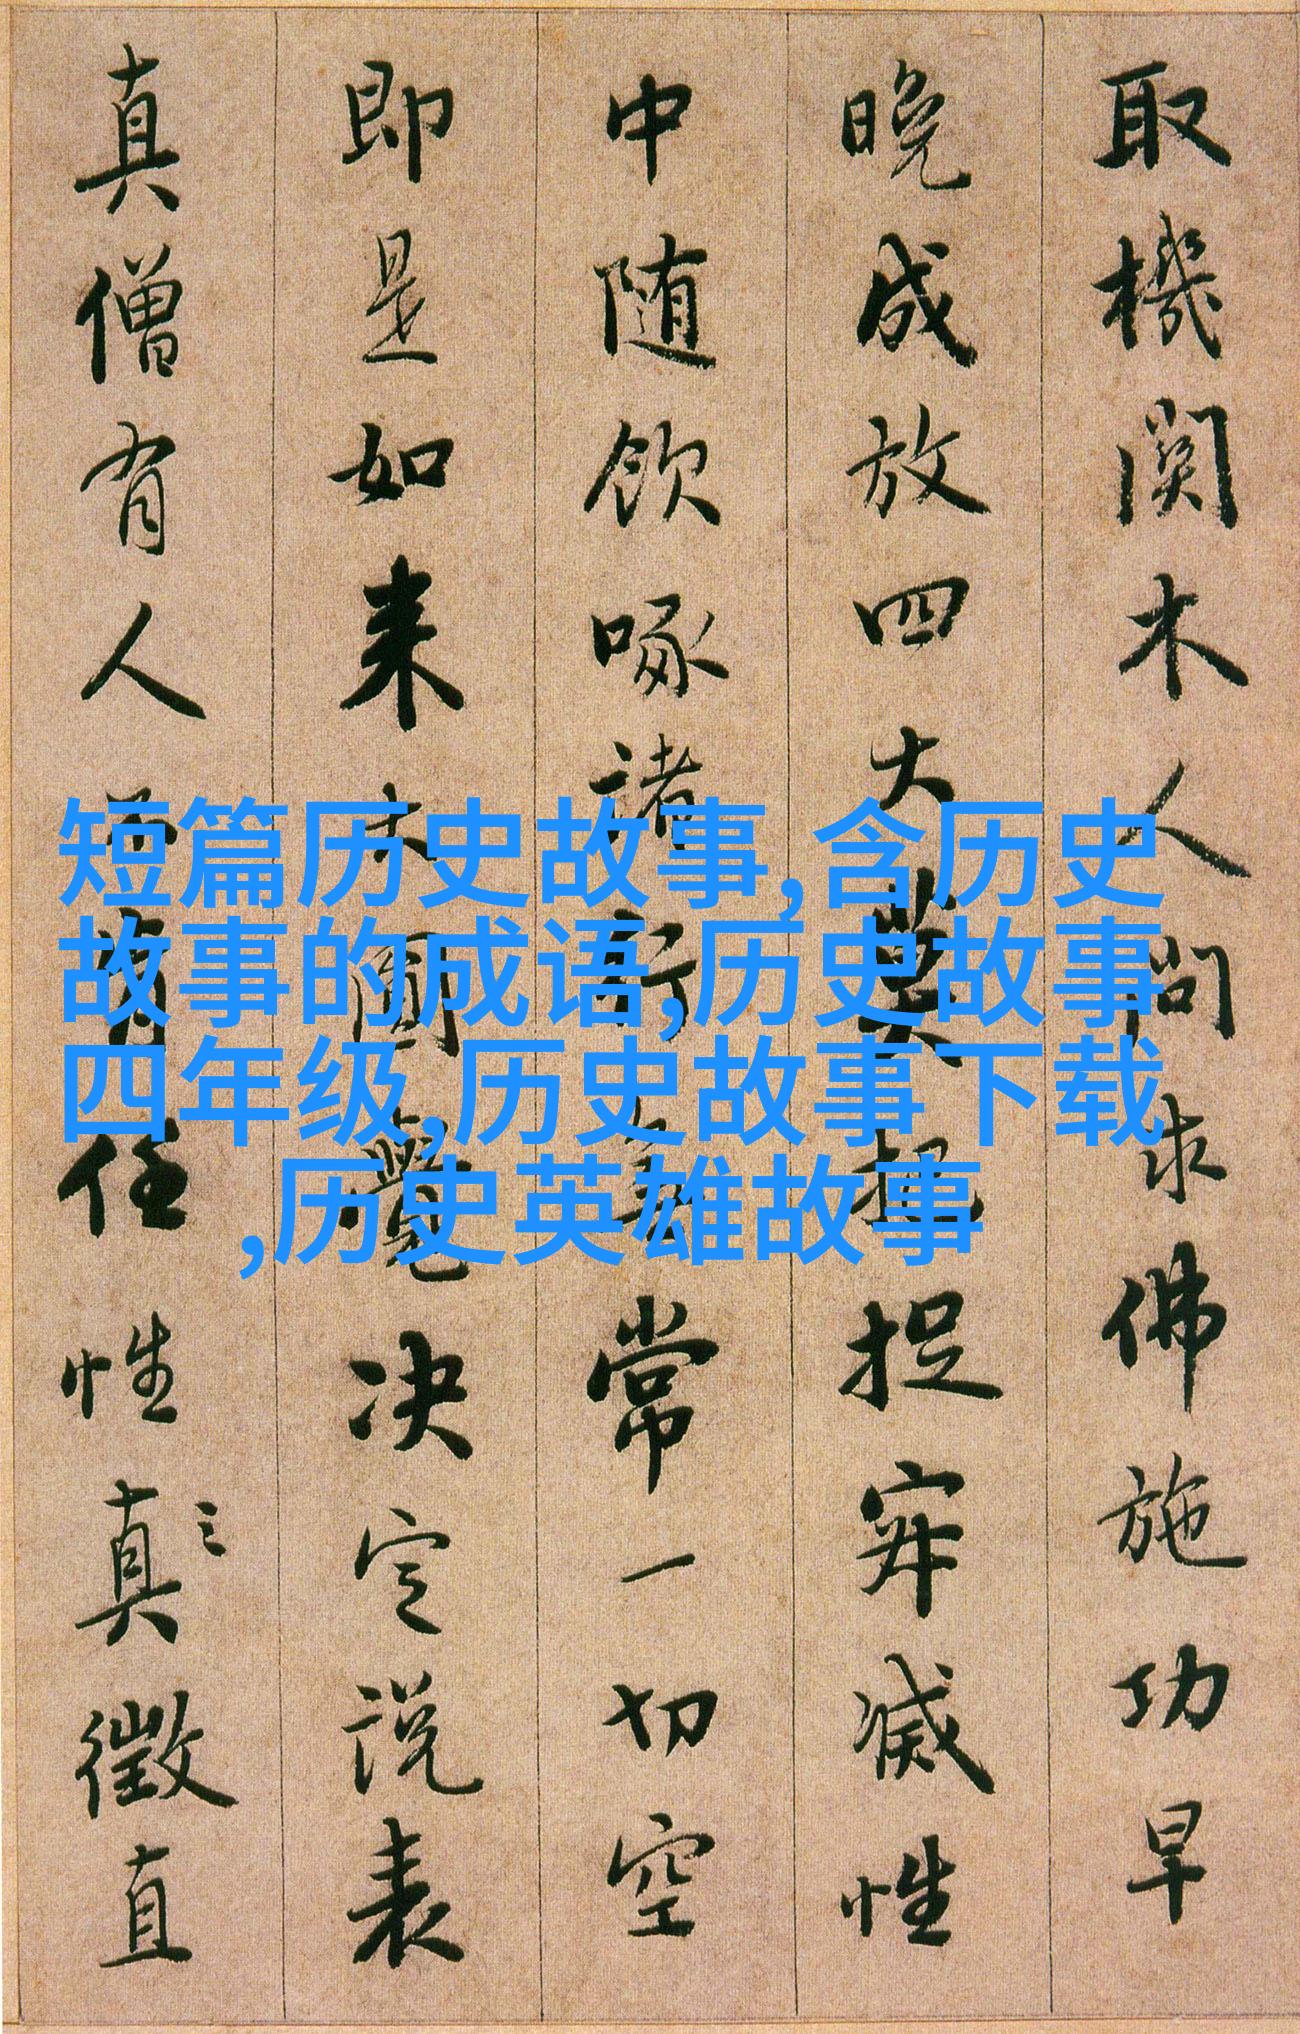 取機関木人問求佛施功早
晚成放四大莫把捉寂滅性
中随飲啄諸行無常一切空
即是如来大圓覺决定説表
真僧有人不肯任性真徵直
短篇历史故事,含历史
故事的成语,历史故事
四年级,历史故事下载
,历史英雄故事